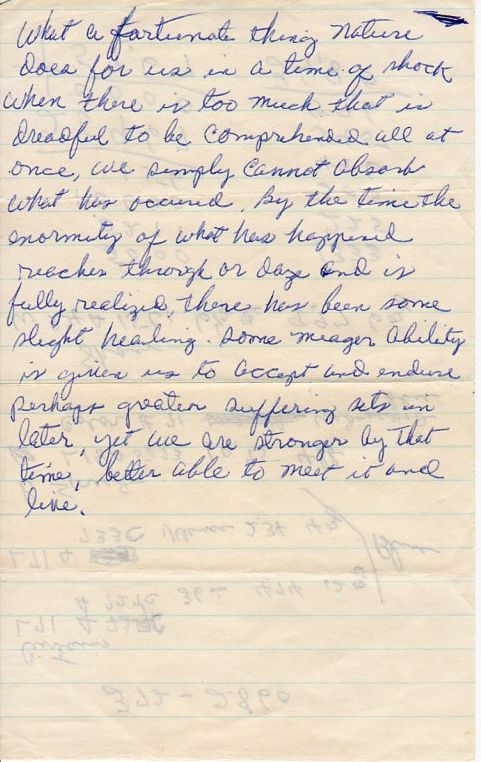 What a fortunate thing nature
does for us in a time of shock
when there is too much that is
dreadful to be comprehended all at
once, we simply cannot absorb
what has occured, by the time the
enormity of what has happened
reaches through or daze and is
fully realized, there has been some
slight healing. some meager ability
is given us to accept and endure
perhaps greater suffering sets in
later, yet we are stronger by that
time, better able to meet it and
live.